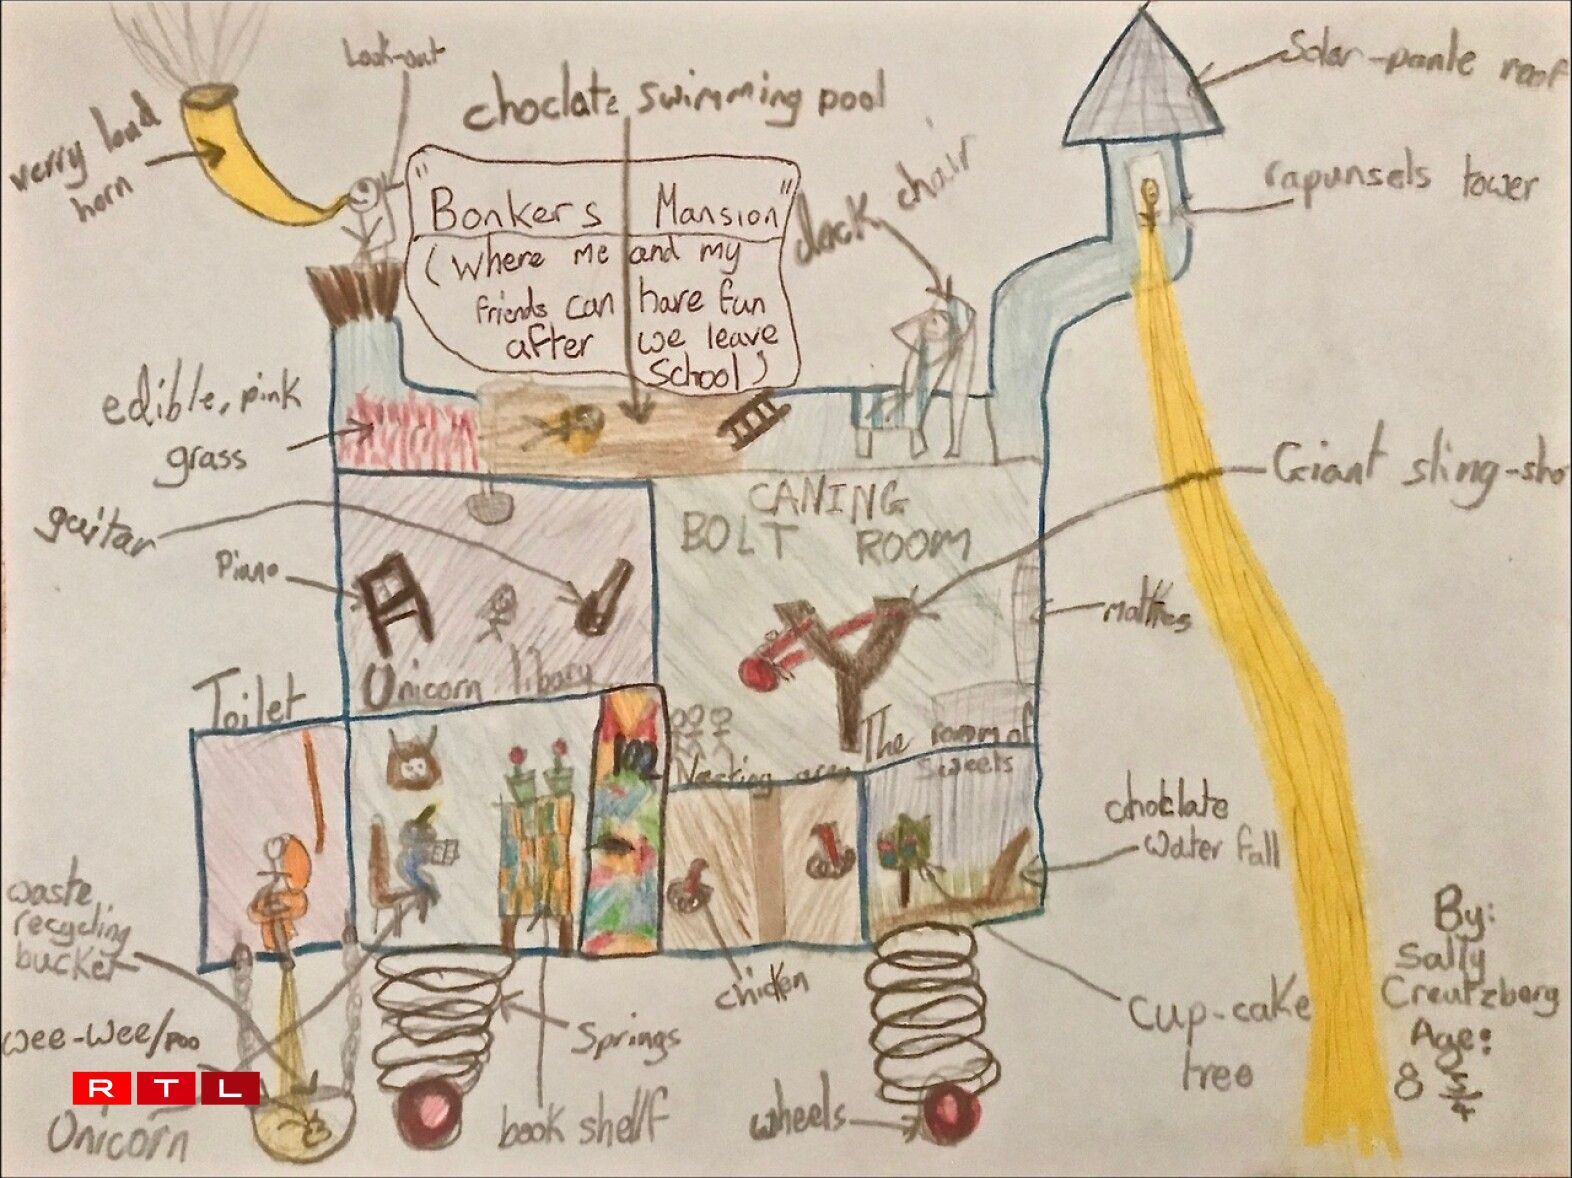 Look-out
verry loud
horn
choclate swimming pool
Solar-panle roof
"Bonkers Mansion"
(Where me and my
friends can have fun
after we leave
School)
deck chair
rapunsels tower
edible, pink
grass
guitar
Piano
CANING
BOLT ROOM
Giant sling-sho
mattres
Unicorn libary
Toilet
The room of
sweets
Nesting area
choclate
water fall
waste
recycling
bucket
wee-wee/poo
Unicorn
RTL
Springs
book shelf
chicken
wheels
Cup-cake
tree
By:
Sally
Creutzberg
Age:
8